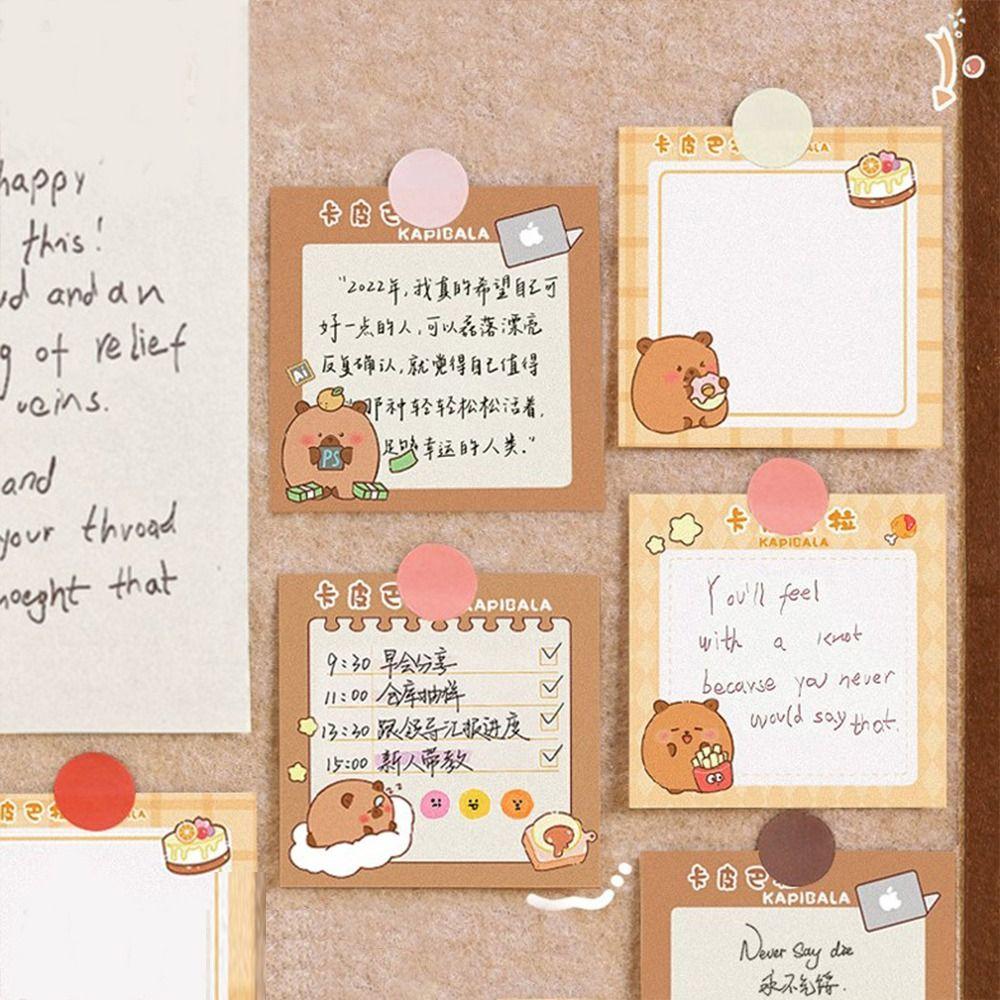 happy
this!
and an
of relief
veins.
and
your throad
thoeght that
卡皮巴
KAPIBALA
"2022年,我真的希望自己可
好一点的人,可以磊落漂亮
反复确认,就觉得自己值得
那种轻轻松松活着,
足够幸运的人类."
Ai
PS
卡皮巴
KAPIBALA
9:30 早会分享
11:00 仓库抽样
13:30 跟领导汇报进度
15:00 新人带教
卡皮巴
卡 拉
KAPIBALA
You'll feel
with a knot
because you never
would say that.
卡皮巴
KAPIBALA
Never say die
永不气馁.